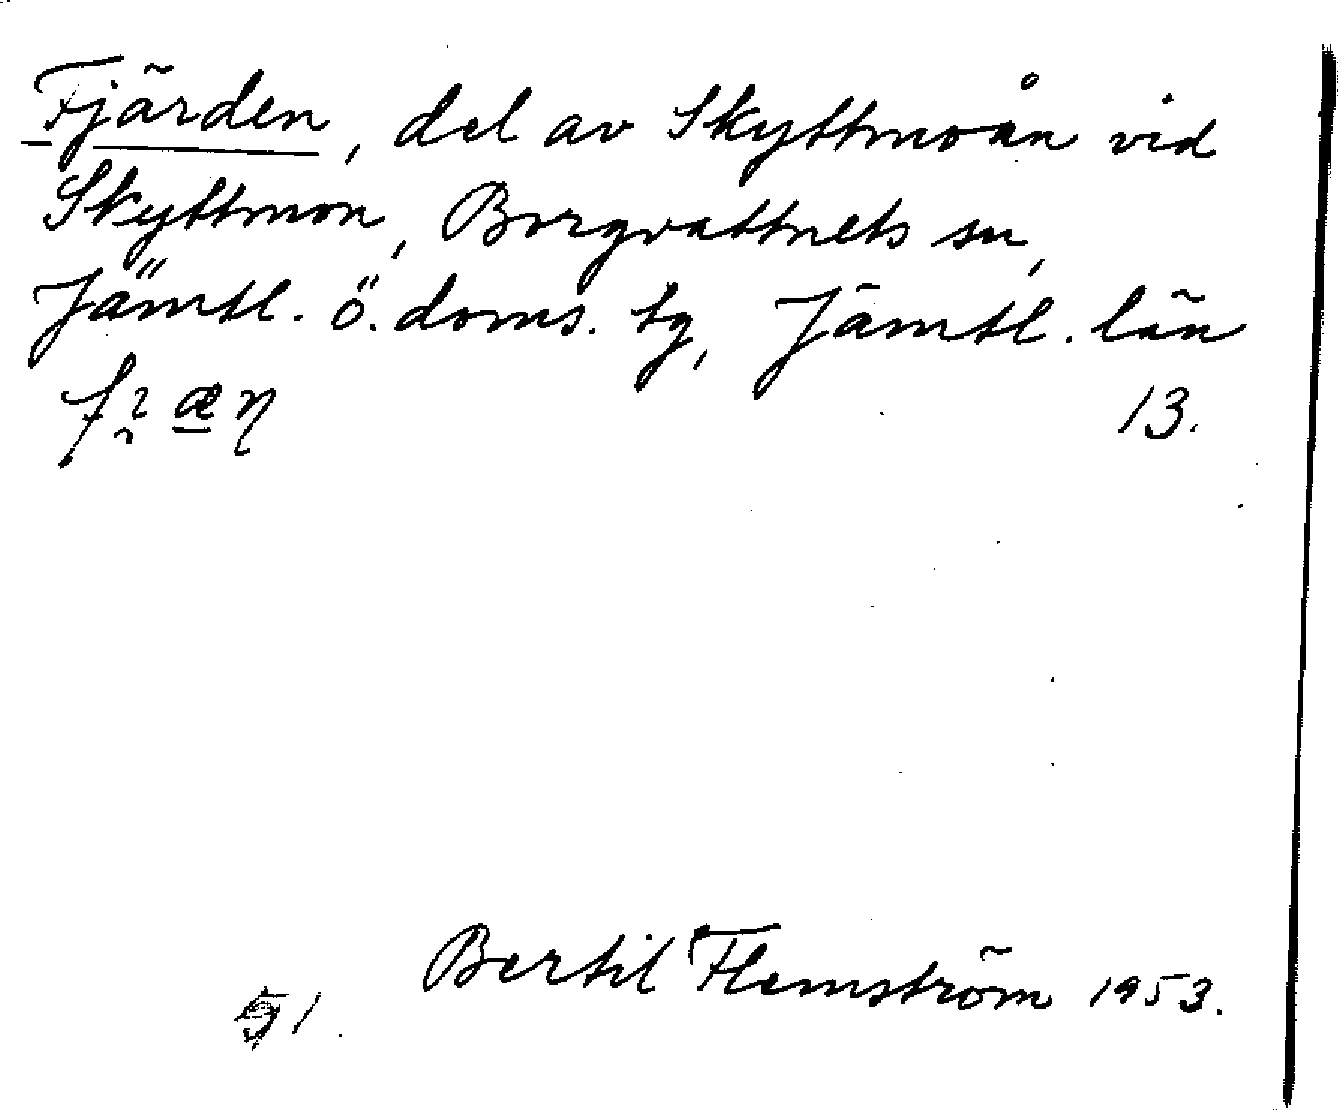 Fjärden, del av Skyttmoån vid
Skyttmon, Borgvattnets sn,
Jämtl. ö. doms. tg, Jämtl. län
13.
Bertil Flemström 1953.
51.